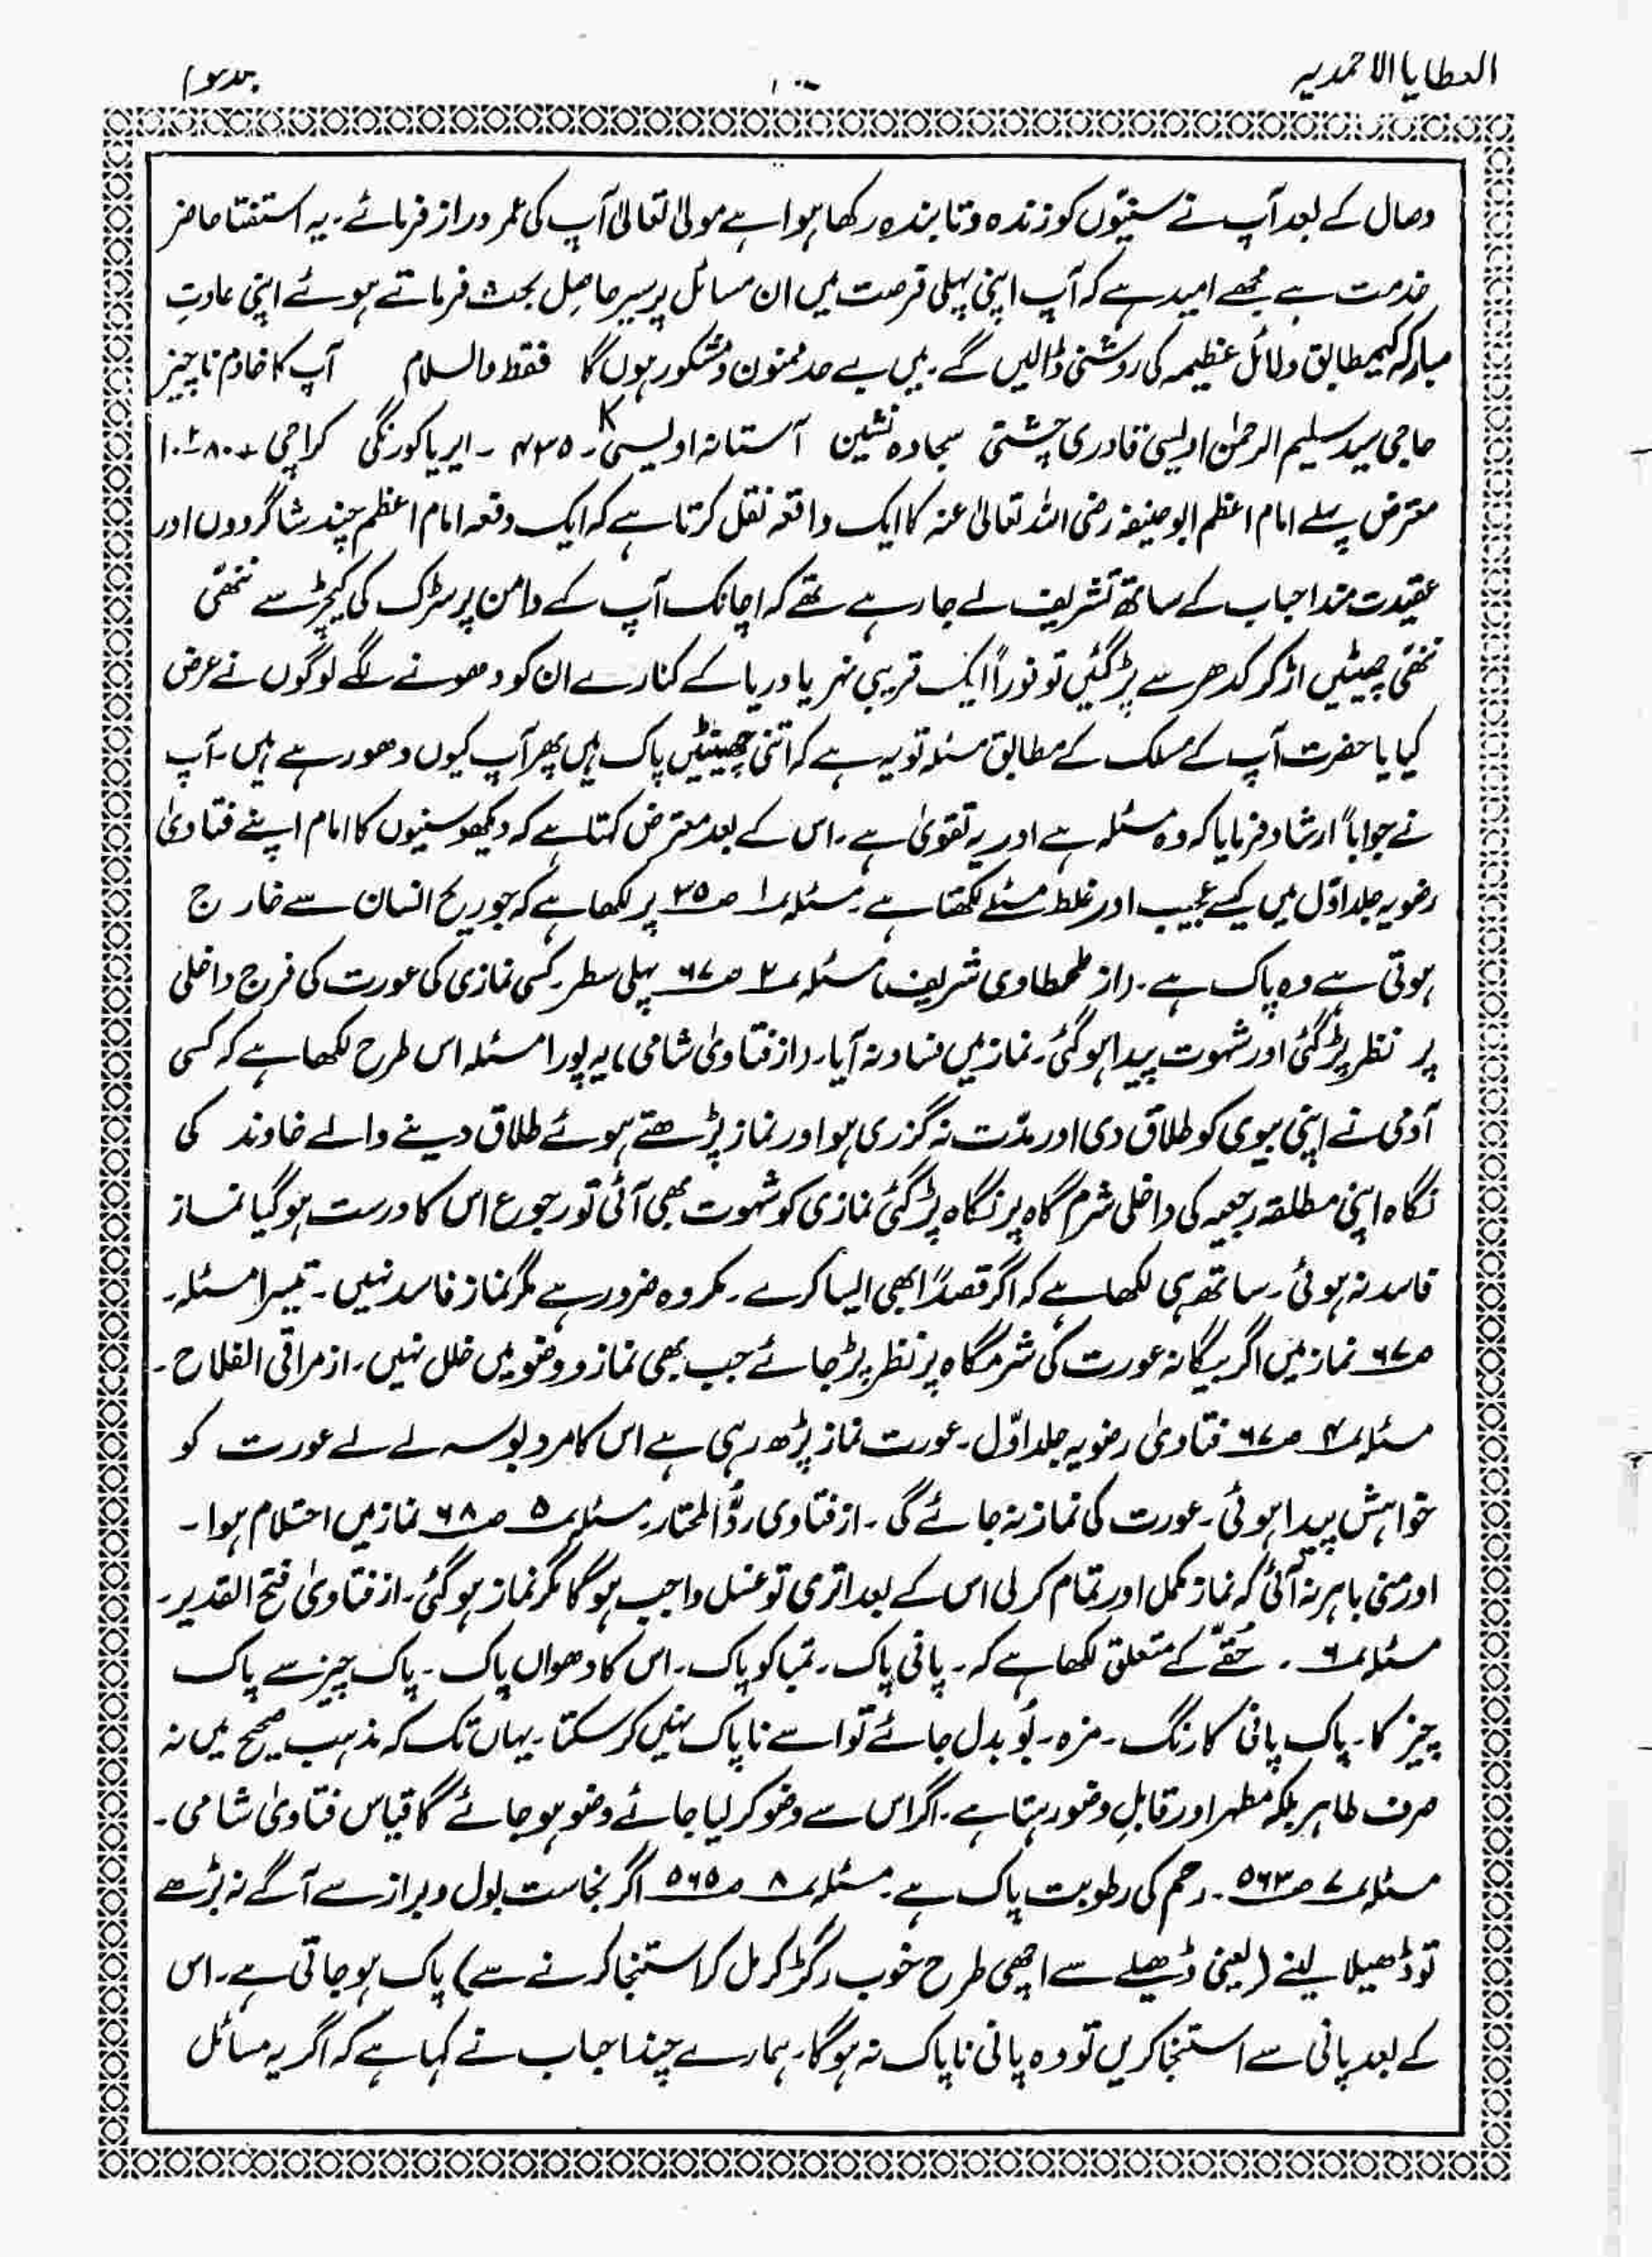 العطایا الاحمدیہ
۱۰۰
وصال کے بعد آپ نے سنیّوں کو زندہ و تابندہ رکھا ہوا ہے مولیٰ تعالیٰ آپ کی عمر دراز فرمائے۔ یہ استفتا حاضر
خدمت ہے مجھے امید ہے کہ آپ اپنی پہلی فرصت میں ان مسائل پر سیر حاصِل بحث فرماتے ہوئے اپنی عادتِ
مبارکہ کیمطابق دلائل عظیمہ کی روشنی ڈالیں گے۔ میں بے حد ممنون و مشکور ہوں گا فقط والسلام آپ کا خادم ناچیز
حاجی سید سلیم الرحمٰن اویسی قادری چشتی سجادہ نشین آستانہ اویسی K۔ ۴۳۵ ۔ ایریا کورنگی کراچی
معترض پہلے امام اعظم ابوحنیفہ رضی اللہ تعالیٰ عنہ کا ایک واقعہ نقل کرتا ہے کہ ایک دفعہ امام اعظم چند شاگردوں اور
عقیدت مند احباب کے ساتھ تشریف لے جا رہے تھے کہ اچانک آپ کے دامن پر سڑک کی کیچڑ سے ننھّی
ننھّی چھیٹیں اڑ کر کدھر سے پڑ گئیں تو فوراً ایک قریبی نہر یا دریا کے کنارے ان کو دھونے لگے لوگوں نے عرض
کیا یا حضرت آپ کے مسلک کے مطابق مسئلہ تو یہ ہے کہ اتنی چھینٹیں پاک ہیں پھر آپ کیوں دھو رہے ہیں۔ آپ
نے جواباً ارشاد فرمایا کہ وہ مسئلہ ہے اور یہ تقویٰ ہے۔ اس کے بعد معترض کہتا ہے کہ دیکھو سنیوں کا امام اپنے فتاویٰ
رضویہ جلد اوّل میں کیسے عجیب اور غلط مسئلے لکھتا ہے۔ مسئلہ ۱ صـ۳۵ پر لکھا ہے کہ جو ریح انسان سے خارج
ہوتی ہے وہ پاک ہے۔ (از طحطاوی شریف) مسئلہ ۲ صـ۶۷ پہلی سطر۔ کسی نمازی کی عورت کی فرج داخلی
پر نظر پڑ گئی اور شہوت پیدا ہو گئی۔ نماز میں فساد نہ آیا۔ (از فتاویٰ شامی) یہ پورا مسئلہ اس طرح لکھا ہے کہ کسی
آدمی نے اپنی بیوی کو طلاق دی اور مدّت نہ گزری ہو اور نماز پڑھتے ہوئے طلاق دینے والے خاوند کی
نگاہ اپنی مطلقہ رجعیہ کی داخلی شرم گاہ پر نگاہ پڑ گئی نمازی کو شہوت بھی آئی تو رجوع اس کا درست ہو گیا نماز
فاسد نہ ہوئی۔ ساتھ ہی لکھا ہے کہ اگر قصداً بھی ایسا کرے۔ مکروہ ضرور ہے مگر نماز فاسد نہیں۔ تیسرا مسئلہ۔
صـ۶۷ نماز میں اگر بیگانہ عورت کی شرمگاہ پر نظر پڑ جائے جب بھی نماز و وضو میں خلل نہیں۔ از مراقی الفلاح۔
مسئلہ ۴ صـ۶۷ فتاویٰ رضویہ جلد اوّل۔ عورت نماز پڑھ رہی ہے اس کا مرد بوسہ لے لے عورت کو
خواہش پیدا ہوئی۔ عورت کی نماز نہ جائے گی۔ از فتاوی ردُّ المحتار۔ مسئلہ ۵ صـ۶۸ نماز میں احتلام ہوا۔
اور منی باہر نہ آئی کہ نماز مکمل اور تمام کر لی اس کے بعد اتری تو غسل واجب ہو گا مگر نماز ہو گئی۔ از فتاویٰ فتح القدیر۔
مسئلہ ۶ ۔ حُقّے کے متعلق لکھا ہے کہ۔ پانی پاک۔ تمباکو پاک۔ اس کا دھواں پاک۔ پاک چیز سے پاک
چیز کا۔ پاک پانی کا رنگ۔ مزہ۔ بُو بدل جائے تو اسے ناپاک نہیں کر سکتا۔ یہاں تک کہ مذہب صحیح میں نہ
صرف طاہر بلکہ مطہر اور قابلِ وضو رہتا ہے۔ اگر اس سے وضو کر لیا جائے وضو ہو جائے گا قیاس فتاویٰ شامی۔
مسئلہ ۷ صـ۵۶۳۔ رحم کی رطوبت پاک ہے۔ مسئلہ ۸ صـ۵۶۵ اگر نجاست بول و براز سے آگے نہ بڑھے
تو ڈھیلا لینے (یعنی ڈھیلے سے اچھی طرح خوب رگڑ کر مل کر استنجا کرنے سے) پاک ہو جاتی ہے۔ اس
کے بعد پانی سے استنجا کریں تو وہ پانی ناپاک نہ ہو گا۔ ہمارے چند احباب نے کہا ہے کہ اگر یہ مسائل